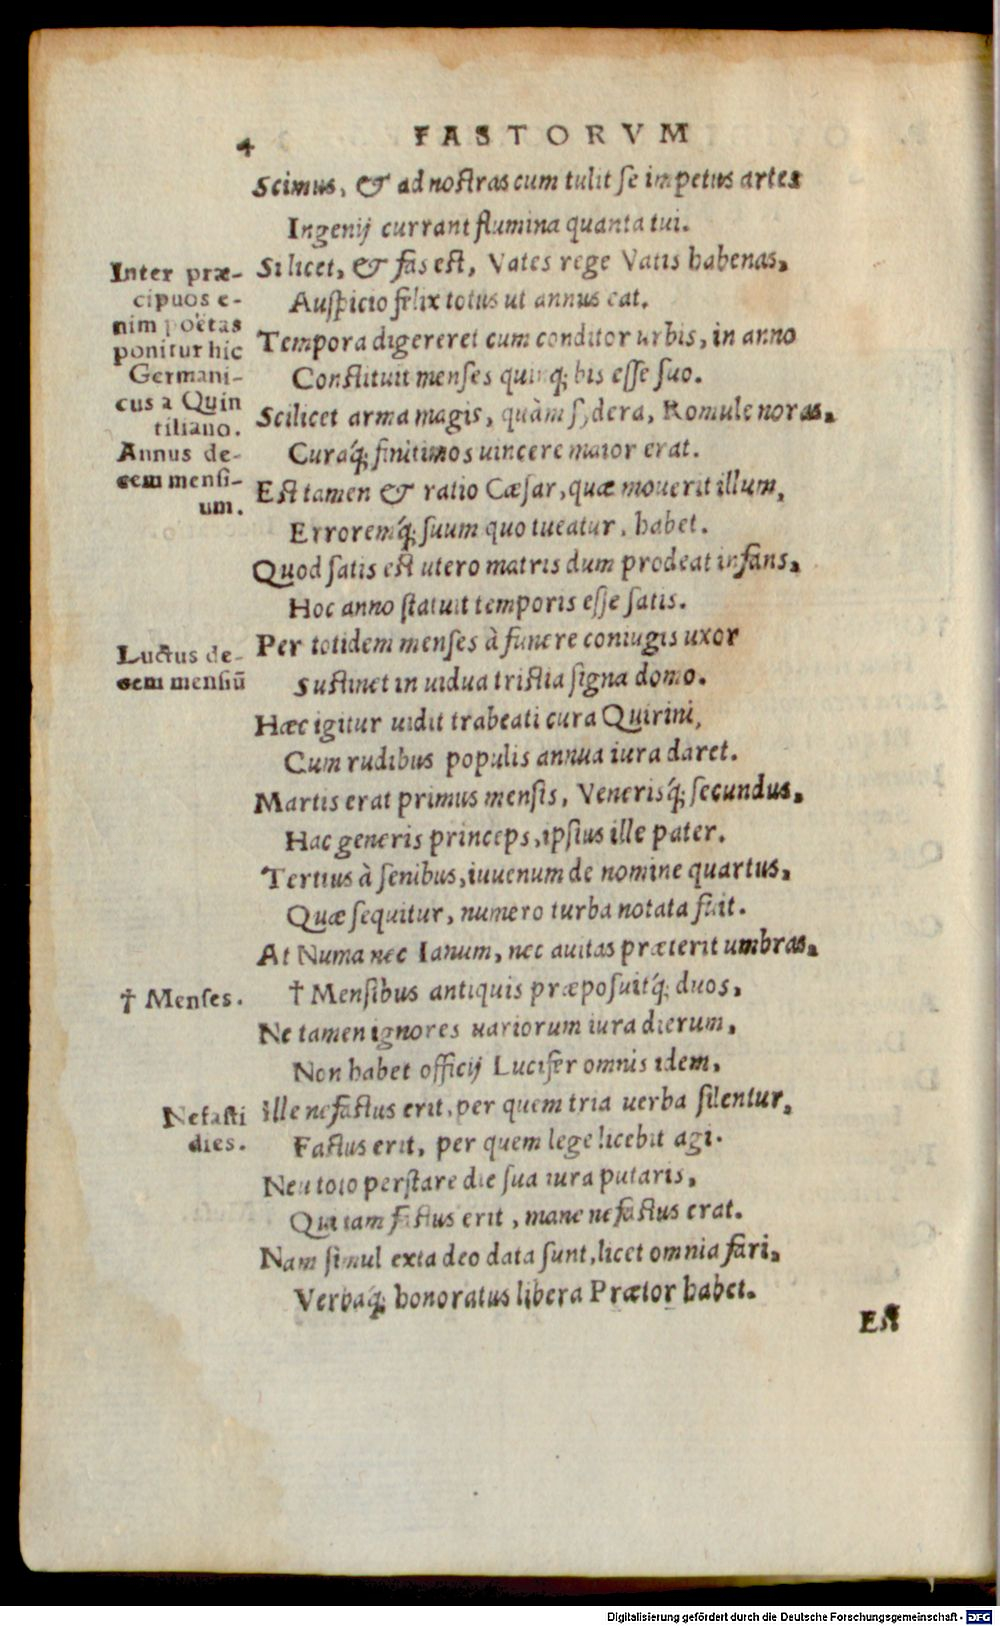 4 FASTORVM
Scimus, & ad nostras cum tulit se impetus artes
Ingenij currant flumina quanta tui.
Si licet, & fas est, Vates rege Vatis habenas,
Auspicio felix totus ut annus eat.
Tempora digereret cum conditor urbis, in anno
Constituit menses quinq; bis esse suo.
Scilicet arma magis, quàm sydera, Romule noras,
Curaq́; finitimos uincere maior erat.
Est tamen & ratio Cæsar, quæ mouerit illum,
Erroremq́; suum quo tueatur, habet.
Quod satis est utero matris dum prodeat infans,
Hoc anno statuit temporis esse satis.
Per totidem menses à funere coniugis uxor
Sustinet in uidua tristia signa domo.
Hæc igitur uidit trabeati cura Quirini,
Cum rudibus populis annua iura daret.
Martis erat primus mensis, Venerisq́; secundus,
Hac generis princeps, ipsius ille pater.
Tertius à senibus, iuuenum de nomine quartus,
Quæ sequitur, numero turba notata fuit.
At Numa nec Ianum, nec auitas præterit umbras,
† Mensibus antiquis præposuitq́; duos,
Ne tamen ignores uariorum iura dierum,
Non habet officij Lucifer omnis idem,
Ille nefastus erit, per quem tria uerba silentur,
Fastus erit, per quem lege licebit agi.
Neu toto perstare die sua iura putaris,
Qui iam fastus erit, mane nefastus erat.
Nam simul exta deo data sunt, licet omnia fari,
Verbaq́; honoratus libera Prætor habet.
Est
Inter præ-
cipuos e-
nim poëtas
ponitur hic
Germani-
cus a Quin
tiliano.
Annus de-
cem mensi-
um.
Luctus de-
cem mensiū
† Menses.
Nefasti
dies.
Digitalisierung gefördert durch die Deutsche Forschungsgemeinschaft - DFG